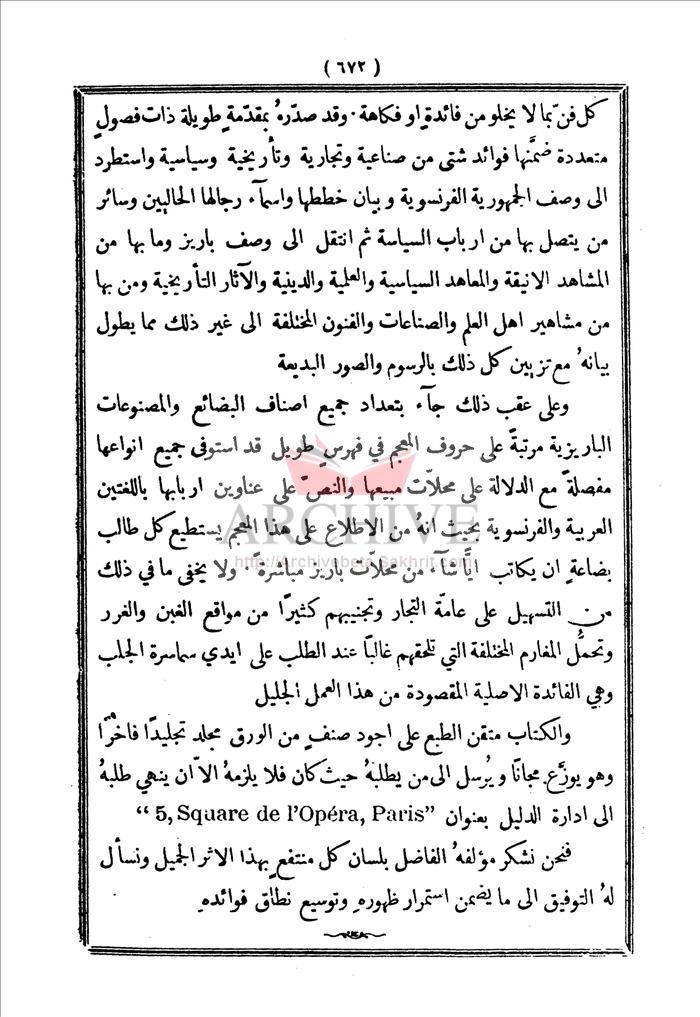 ( ٦٧٢ )
كل فن بما لا يخلو من فائدةٍ او فكاهة . وقد صدّرهُ بمقدّمةٍ طويلة ذات فصولٍ
متعددة ضمَّنها فوائد شتى من صناعية وتجارية وتأريخية وسياسية واستطرد
الى وصف الجمهورية الفرنسوية وبيان خططها واسمآء رجالها الحاليين وسائر
من يتصل بها من ارباب السياسة ثم انتقل الى وصف باريز وما بها من
المشاهد الانيقة والمعاهد السياسية والعلمية والدينية والآثار التأريخية ومن بها
من مشاهير اهل العلم والصناعات والفنون المختلفة الى غير ذلك مما يطول
بيانهُ مع تزيين كل ذلك بالرسوم والصور البديعة
وعلى عقب ذلك جآء بتعداد جميع اصناف البضائع والمصنوعات
الباريزية مرتبةً على حروف المعجم في فهرسٍ طويل قد استوفى جميع انواعها
مفصلةً مع الدلالة على محلّات مبيعها والنصّ على عناوين اربابها باللغتين
العربية والفرنسوية بحيث انهُ من الاطلاع على هذا المعجم يستطيع كل طالب
بضاعةٍ ان يكاتب ايًّا شآء من محلّات باريز مباشرةً . ولا يخفى ما في ذلك
من التسهيل على عامّة التجار وتجنيبهم كثيرًا من مواقع الغبن والغرر
وتحمُّل المغارم المختلفة التي تلحقهم غالبًا عند الطلب على ايدي سماسرة الجلب
وهي الفائدة الاصلية المقصودة من هذا العمل الجليل
والكتاب متقن الطبع على اجود صنفٍ من الورق مجلد تجليدًا فاخرًا
وهو يوزَّع مجانًا ويُرسل الى من يطلبهُ حيث كان فلا يلزمهُ الاّ ان ينهي طلبهُ
الى ادارة الدليل بعنوان "5, Square de l'Opéra, Paris"
فنحن نشكر مؤلفهُ الفاضل بلسان كل منتفعٍ بهذا الاثر الجميل ونسأل
لهُ التوفيق الى ما يضمن استمرار ظهورهِ وتوسيع نطاق فوائدهِ
ARCHIVE
http://Archivebeta.Sakhrit.com